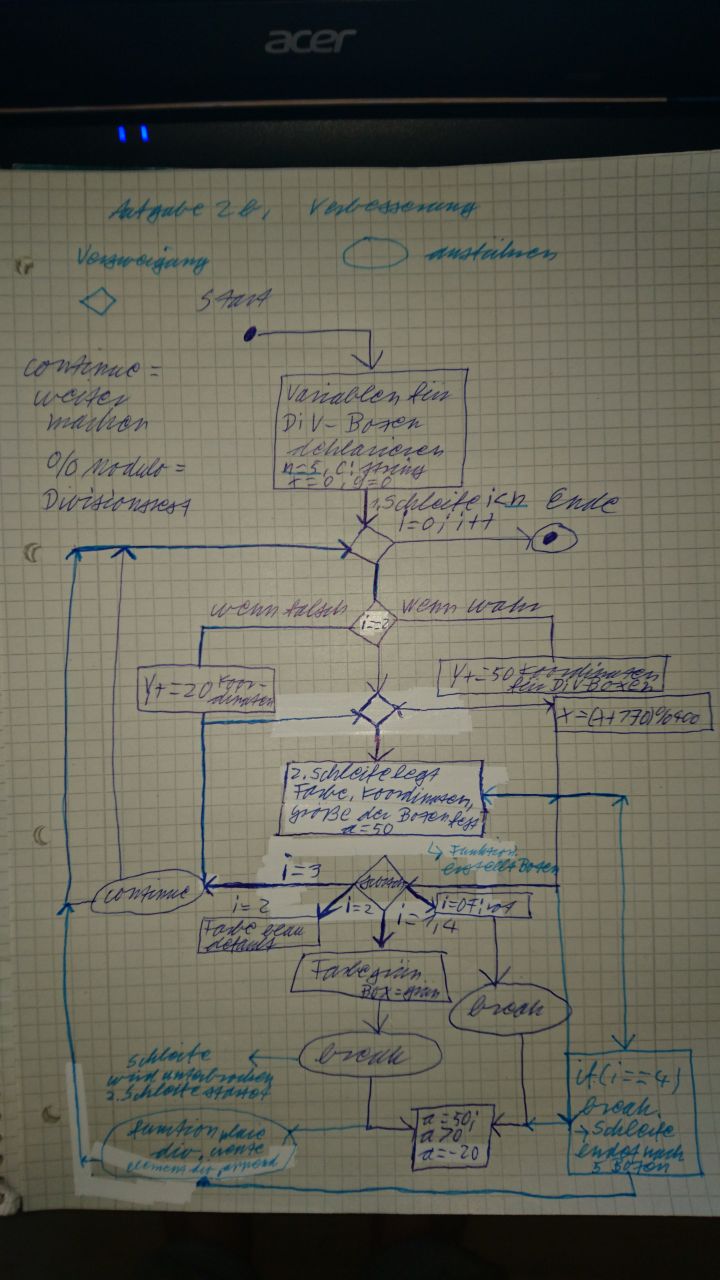 acer
Aufgabe 2b, Verbesserung
Verzweigung
ausführen
Start
continue =
weiter
machen
% Modulo =
Divisionsrest
Variablen für
DiV-Boxen
deklarieren
n=5, C: string
x=0, y=0
1. Schleife i<n
i=0; i++
Ende
wenn falsch
wenn wahr
i==2
y+=20 Koor-
dinaten
y+=50 Koordinaten
für DiV Boxen
x=(x+170)%400
2. Schleife legt
Farbe, Koordinaten,
größe der Boxen fest
a=50
↳ Funktion
erstellt Boxen
i=3
continue
i=2
i=2
i=1,4
i=0
rot
Farbe
default
Farbe grün
Box=grün
break
break
Schleife
wird unterbrochen
2. Schleife startet
function place
div, create
element div append
a=50;
a>0
a=-20
if(i==4)
break
→ Schleife
endet nach
5 Boxen